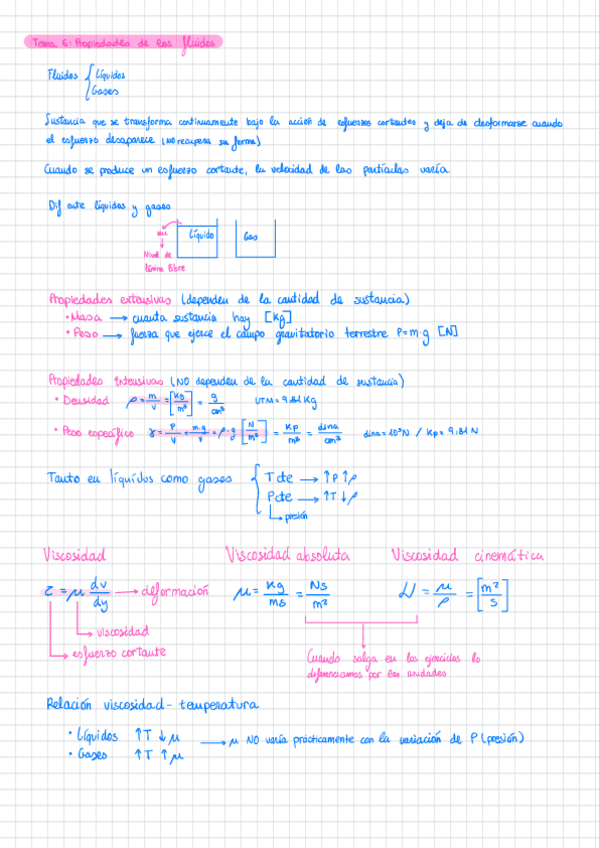 Tema 6: Propiedades de los fluidos
Fluidos { Líquidos
Gases
Sustancia que se transforma continuamente bajo la acción de esfuerzos cortantes y deja de deformarse cuando
el esfuerzo desaparece (NO recupera su forma)
Cuando se produce un esfuerzo cortante, la velocidad de las partículas varía
Dif ente líquidos y gases
NLL Líquido Gas
Nivel de
lámina libre
Propiedades extensivas (dependen de la cantidad de sustancia)
• Masa → cuanta sustancia hay [Kg]
• Peso → fuerza que ejerce el campo gravitatorio terrestre P=m·g [N]
Propiedades Intensivas (NO dependen de la cantidad de sustancia)
• Densidad ρ = m/V = [Kg/m³] = g/cm³ UTM = 9.81 Kg
• Peso específico γ = P/V = m·g/V = ρ·g [N/m³] = Kp/m³ = dina/cm³ dina = 10⁵N / Kp = 9.81 N
Tanto en líquidos como gases { T cte → ↑P ↑ρ
P cte → ↑T ↓ρ
presión
Viscosidad Viscosidad absoluta Viscosidad cinemática
τ = μ dv/dy → deformación μ = Kg/ms = Ns/m² ν = μ/ρ = [m²/s]
viscosidad
esfuerzo cortante
Cuando salga en los ejercicios lo
diferenciamos por las unidades
Relación viscosidad - temperatura
• Líquidos ↑T ↓μ → μ NO varía prácticamente con la variación de P (presión)
• Gases ↑T ↑μ